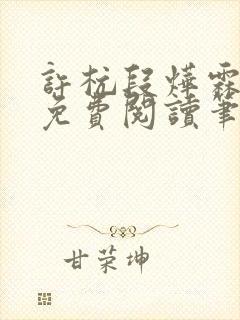 許杭段燁霖
免費閱讀筆
甘荣坤